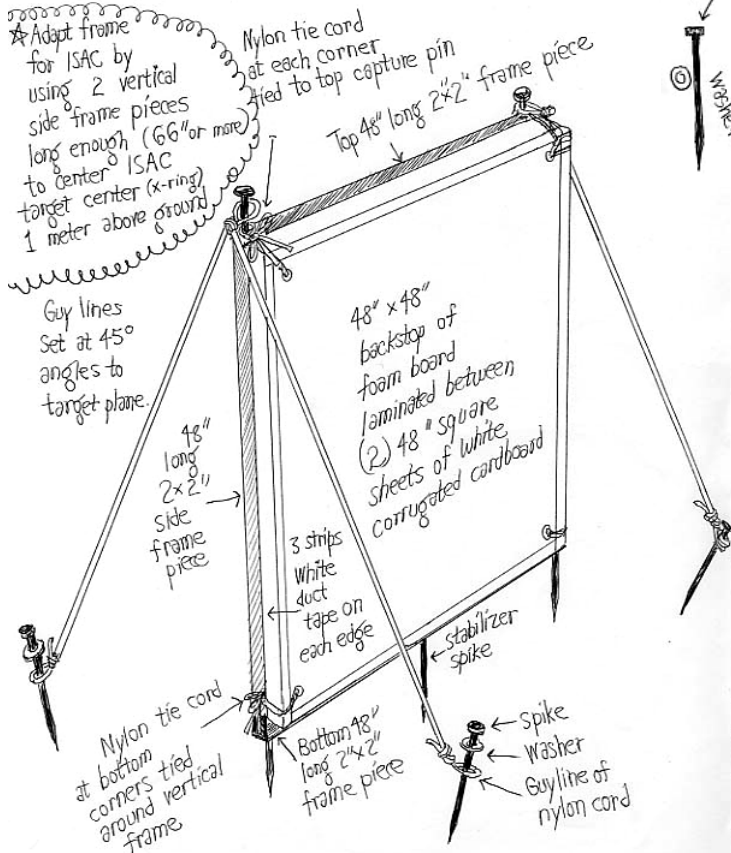 ☆Adapt frame
for ISAC by
using 2 vertical
side frame pieces
long enough (66" or more)
to center ISAC
target center (x-ring)
1 meter above ground
Nylon tie cord
at each corner
tied to top capture pin
Top 48" long 2"x2" frame piece
washer
Guy lines
Set at 45°
angles to
target plane.
48"
long
2x2"
side
frame
piece
48" x 48"
backstop of
foam board
laminated between
(2) 48" square
sheets of white
corrugated cardboard
3 strips
White
duct
tape on
each edge
stabilizer
spike
Nylon tie cord
at bottom
corners tied
around vertical
frame
Bottom 48"
long 2"x2"
frame piece
Spike
Washer
Guyline of
nylon cord